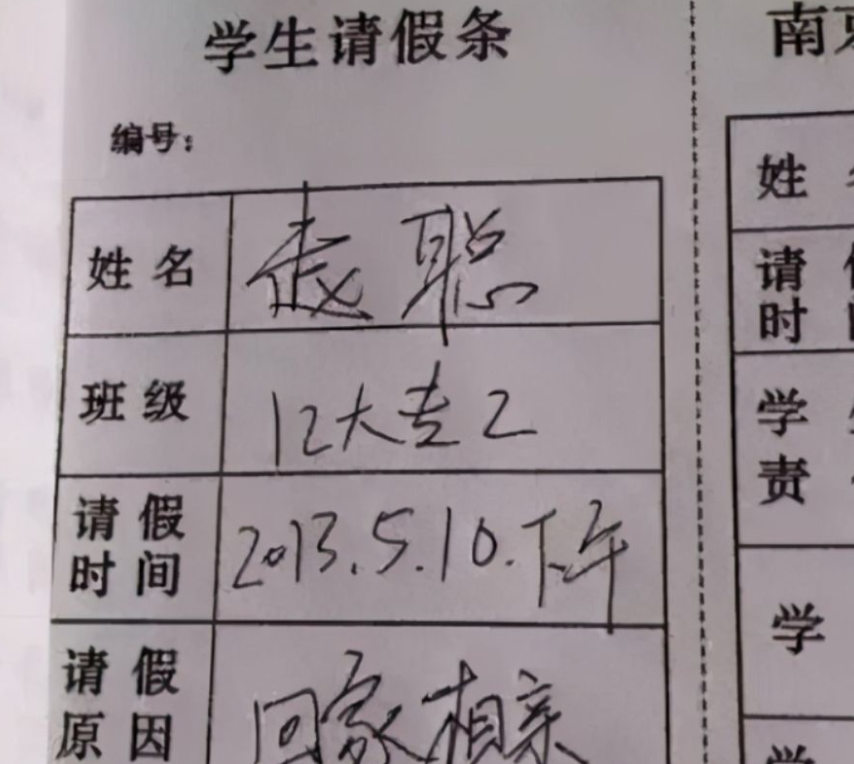 学生请假条
编号:
姓名 袁聪
班级 12大专2
请假时间 2013.5.10.下午
请假原因 回家相亲
南
姓
请
时
学
责
学
学